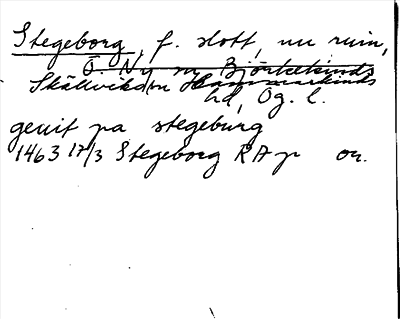 Stegeborg, f. slott, nu ruin,
Ö. Ny sn, Björkekinds
Skällviks sn Hammarkinds
hd, Ög. l.
geuit pa stegeburg
1463 17/3 Stegeborg RAp or.